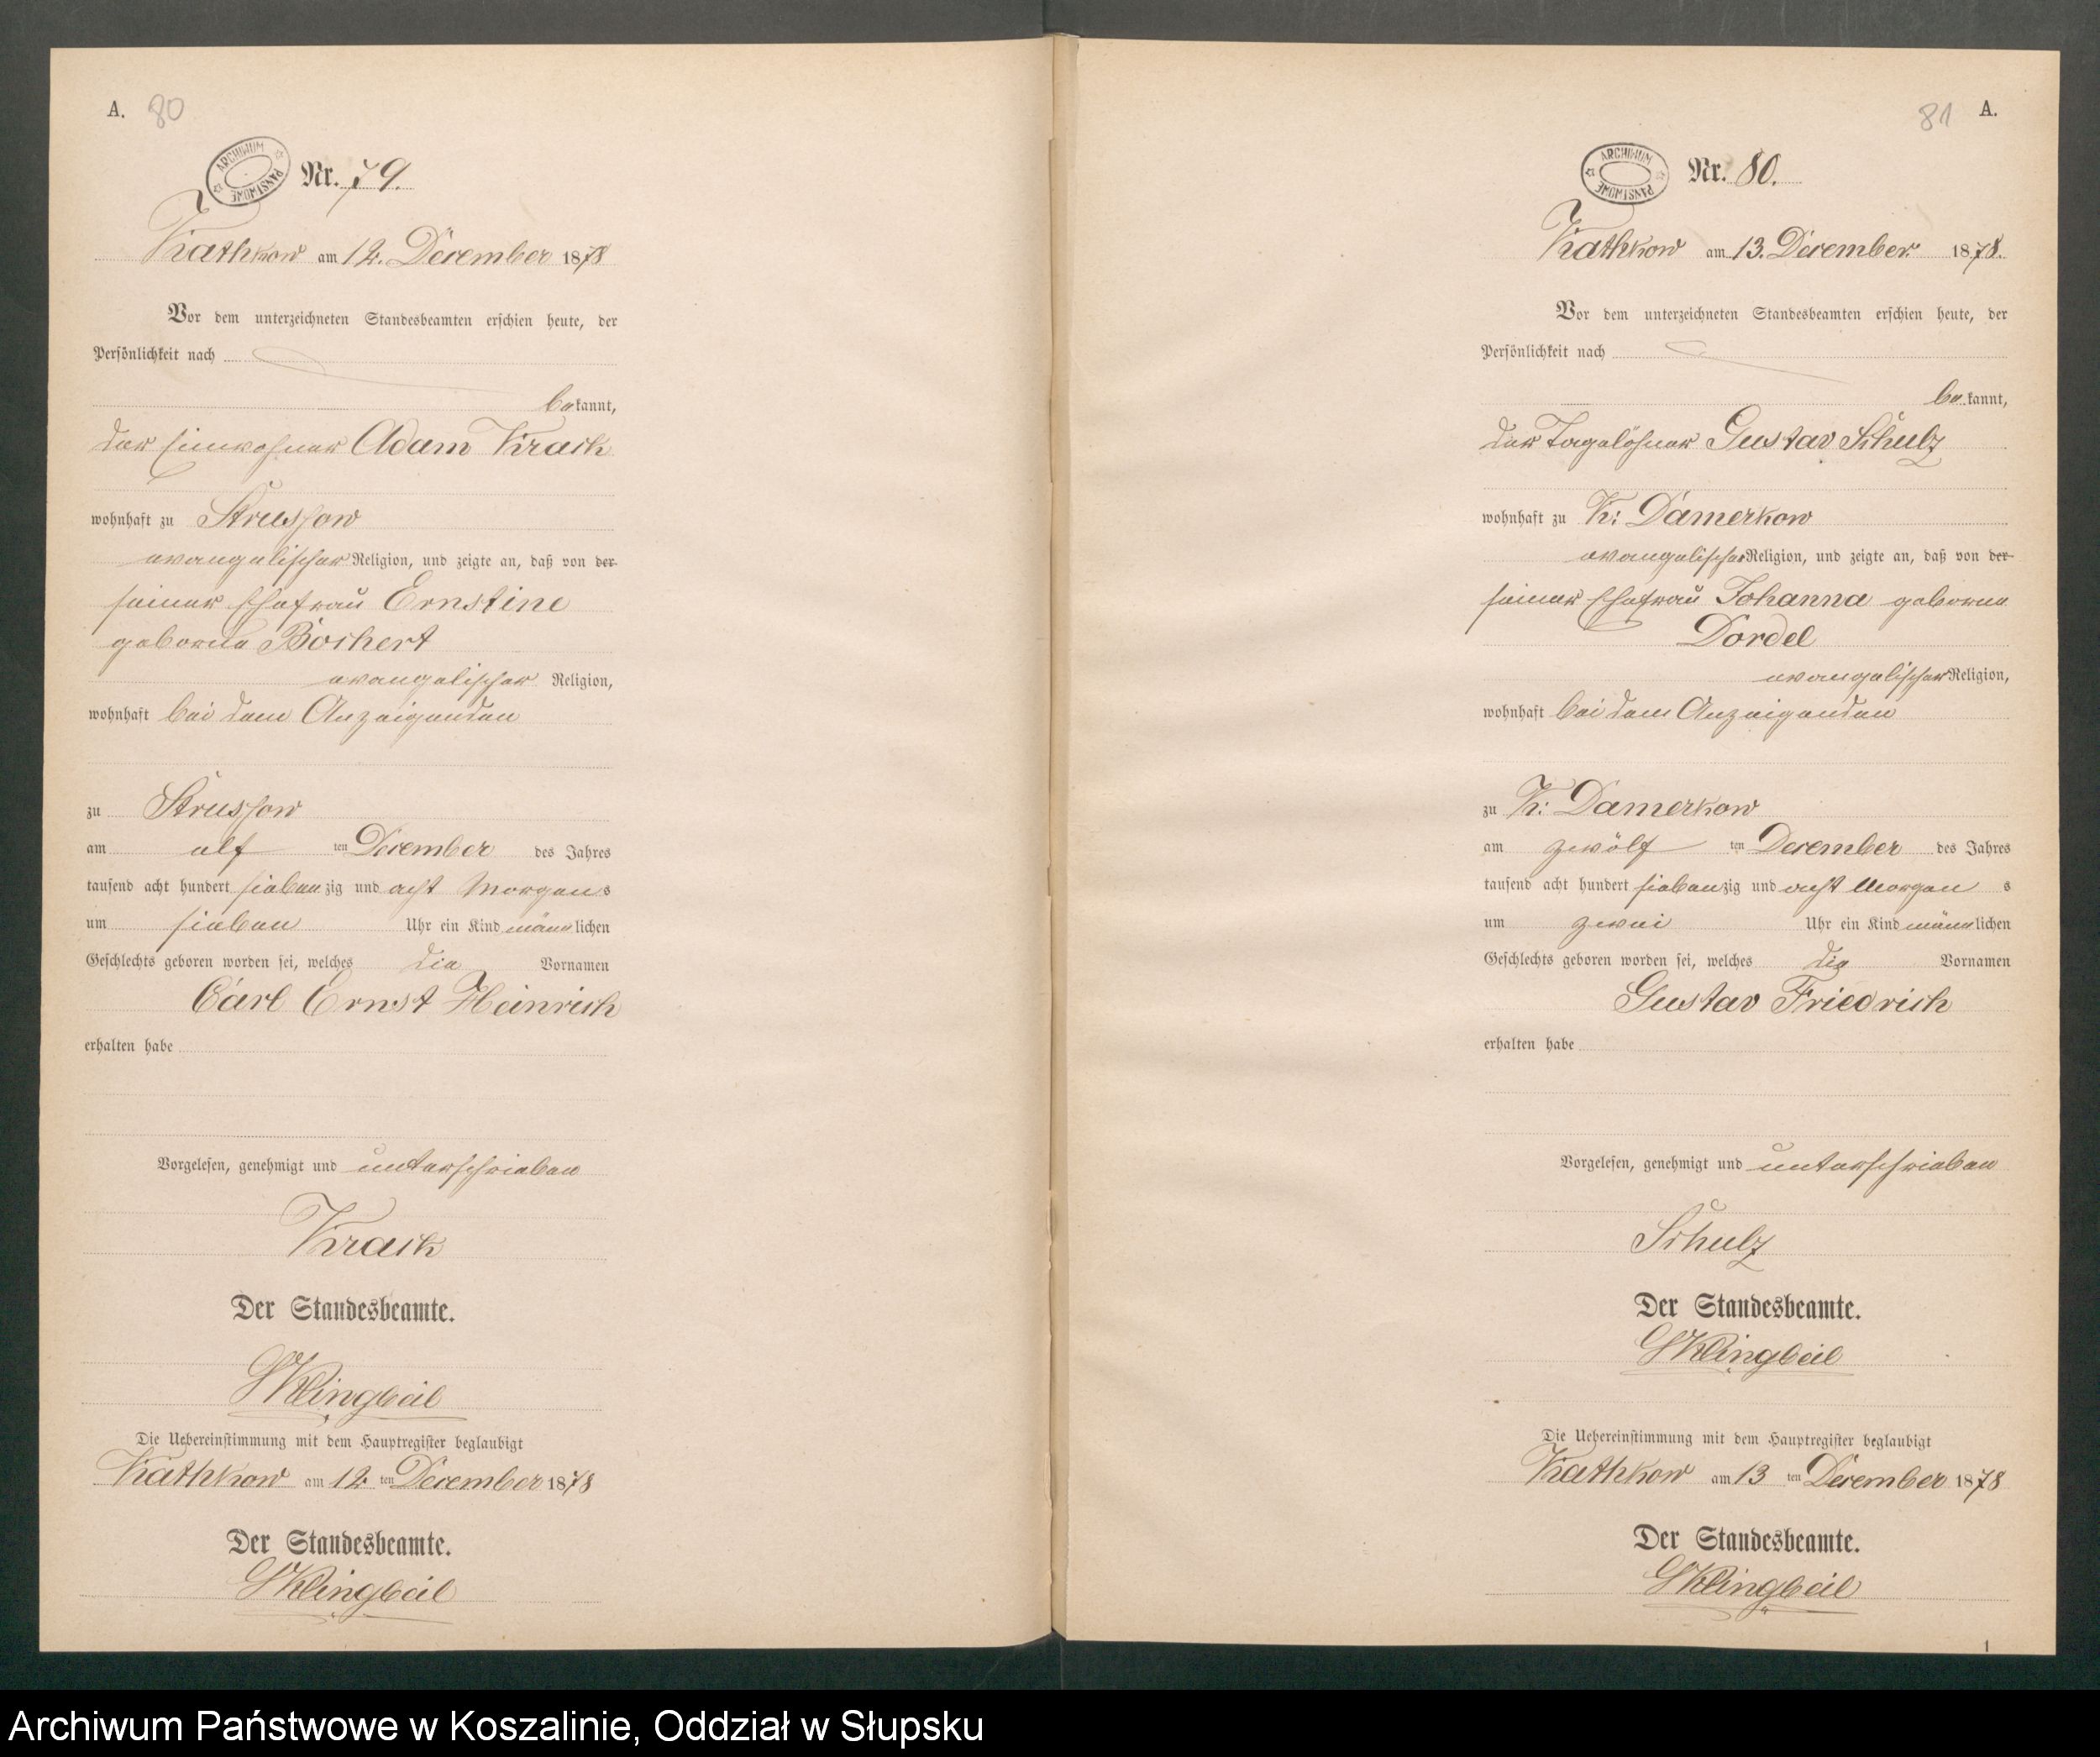 A. 80
ARCHIWUM PAŃSTWOWE
Nr. 79.
Kathkow am 12. December 1878
Vor dem unterzeichneten Standesbeamten erschien heute, der
Persönlichkeit nach
bekannt,
der Einwohner Adam Krack
wohnhaft zu Strussow
evangelischer Religion, und zeigte an, daß von der
seiner Ehefrau Ernstine
geborne Bochert
evangelischer Religion,
wohnhaft bei dem Anzeigenden
zu Strussow
am elf ten December des Jahres
tausend acht hundert siebenzig und acht Morgens
um sieben Uhr ein Kind männlichen
Geschlechts geboren worden sei, welches die Vornamen
Carl Ernst Heinrich
erhalten habe
Vorgelesen, genehmigt und unterschrieben
Krack
Der Standesbeamte.
Klingbeil
Die Uebereinstimmung mit dem Hauptregister beglaubigt
Kathkow am 12 ten December 1878
Der Standesbeamte.
Klingbeil
81 A.
ARCHIWUM PAŃSTWOWE
Nr. 80.
Kathkow am 13. December 1878.
Vor dem unterzeichneten Standesbeamten erschien heute, der
Persönlichkeit nach
bekannt,
der Tagelöhner Gustav Schulz
wohnhaft zu Kl: Damerkow
evangelischer Religion, und zeigte an, daß von der
seiner Ehefrau Johanna geborne
Dordel
evangelischer Religion,
wohnhaft bei dem Anzeigenden
zu Kl: Damerkow
am zwölf ten December des Jahres
tausend acht hundert siebenzig und acht Morgens
um zwei Uhr ein Kind männlichen
Geschlechts geboren worden sei, welches die Vornamen
Gustav Friedrich
erhalten habe
Vorgelesen, genehmigt und unterschrieben
Schulz
Der Standesbeamte.
Klingbeil
Die Uebereinstimmung mit dem Hauptregister beglaubigt
Kathkow am 13 ten December 1878
Der Standesbeamte.
Klingbeil
1
Archiwum Państwowe w Koszalinie, Oddział w Słupsku